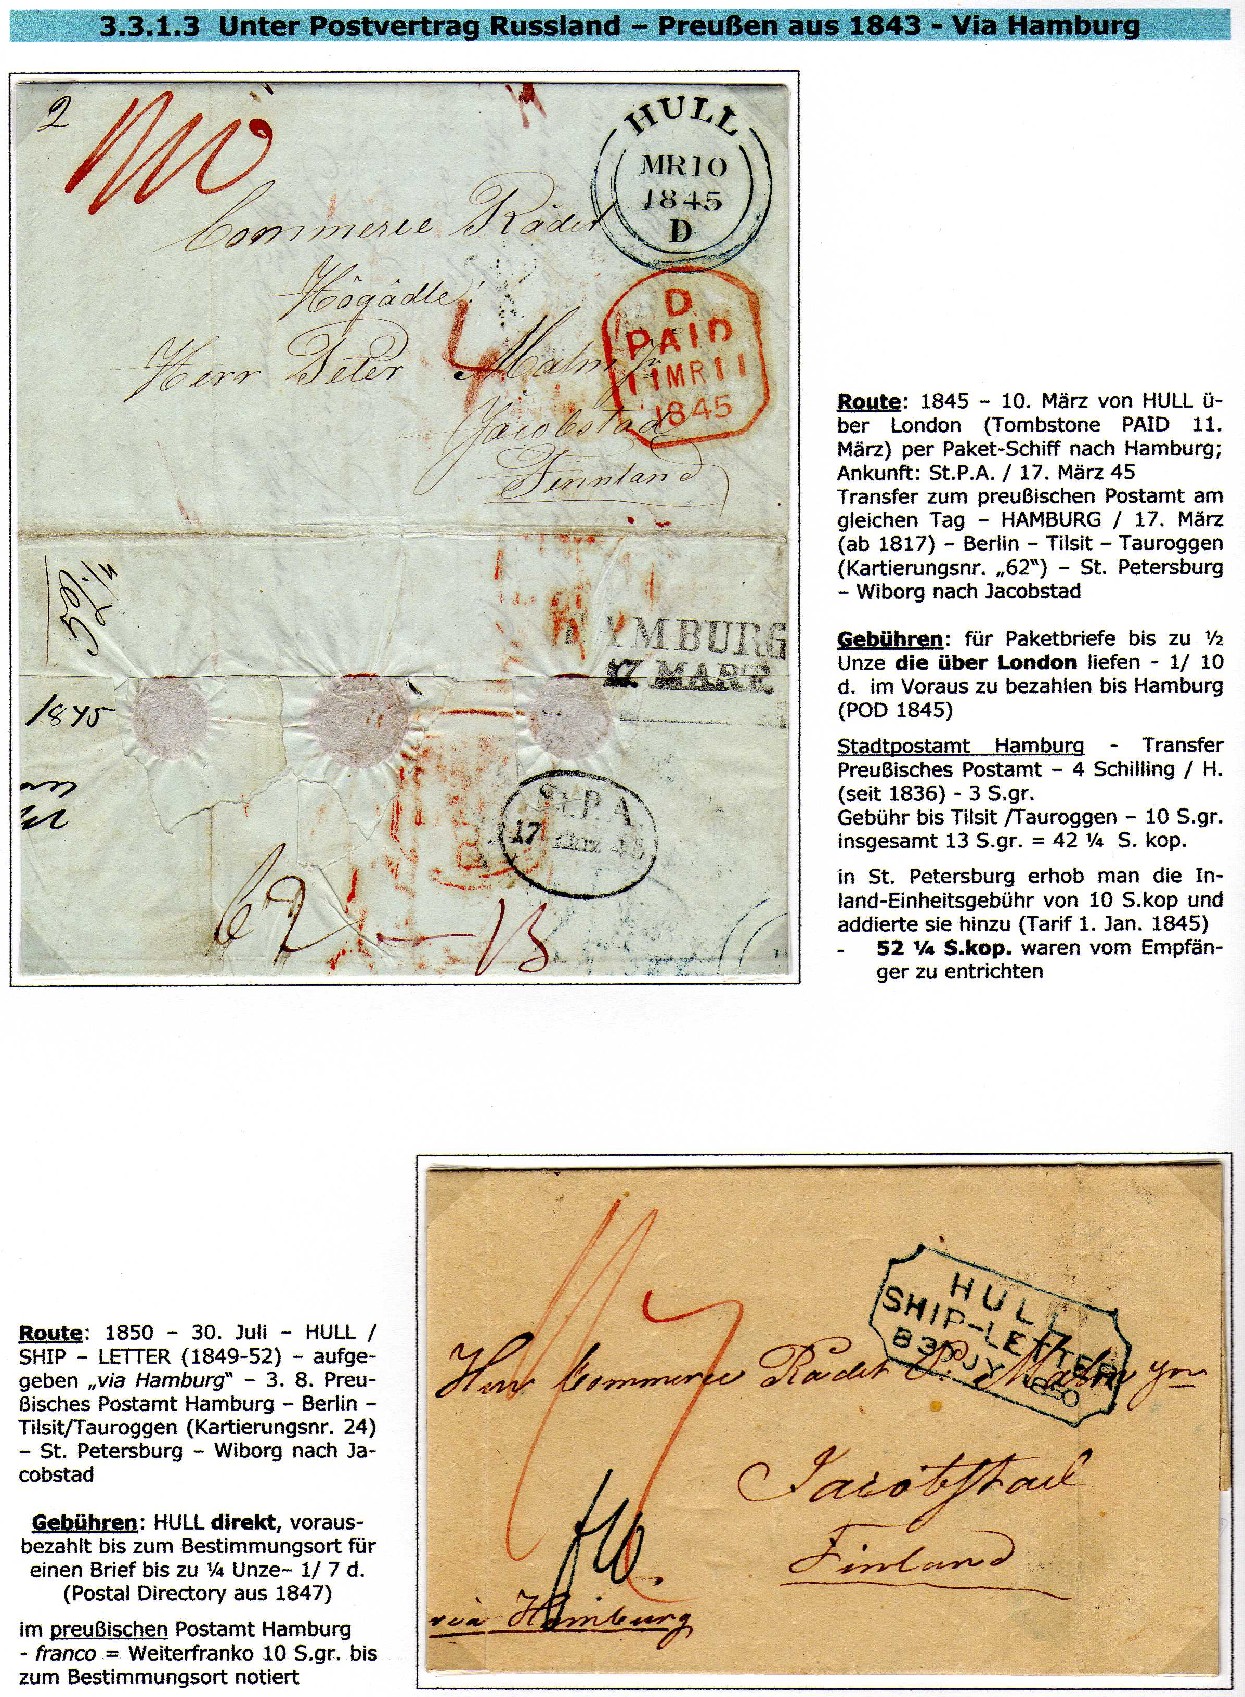 3.3.1.3 Unter Postvertrag Russland – Preußen aus 1843 - Via Hamburg
2
HULL
MR10
1845
D
Commerce Rådet
Högädle
D
PAID
11MR11
1845
4
Herr Peter Malm jr
Jacobstad
Finnland
HAMBURG
17. MART.
1845
St.P.A.
17 März 45
62
13
Route: 1845 – 10. März von HULL ü-
ber London (Tombstone PAID 11.
März) per Paket-Schiff nach Hamburg;
Ankunft: St.P.A. / 17. März 45
Transfer zum preußischen Postamt am
gleichen Tag – HAMBURG / 17. März
(ab 1817) – Berlin – Tilsit – Tauroggen
(Kartierungsnr. „62“) – St. Petersburg
– Wiborg nach Jacobstad
Gebühren: für Paketbriefe bis zu ½
Unze die über London liefen - 1/ 10
d. im Voraus zu bezahlen bis Hamburg
(POD 1845)
Stadtpostamt Hamburg - Transfer
Preußisches Postamt – 4 Schilling / H.
(seit 1836) - 3 S.gr.
Gebühr bis Tilsit /Tauroggen – 10 S.gr.
insgesamt 13 S.gr. = 42 ¼ S. kop.
in St. Petersburg erhob man die In-
land-Einheitsgebühr von 10 S.kop und
addierte sie hinzu (Tarif 1. Jan. 1845)
- 52 ¼ S.kop. waren vom Empfän-
ger zu entrichten
Route: 1850 – 30. Juli – HULL /
SHIP – LETTER (1849-52) – aufge-
geben „via Hamburg“ – 3. 8. Preu-
ßisches Postamt Hamburg – Berlin –
Tilsit/Tauroggen (Kartierungsnr. 24)
– St. Petersburg – Wiborg nach Ja-
cobstad
Gebühren: HULL direkt, voraus-
bezahlt bis zum Bestimmungsort für
einen Brief bis zu ¼ Unze– 1/ 7 d.
(Postal Directory aus 1847)
im preußischen Postamt Hamburg
- franco = Weiterfranko 10 S.gr. bis
zum Bestimmungsort notiert
HULL
SHIP-LETTER
B 30 JY 1850
1/7
Herr Commerce Rådet P. Malm jnr
Jacobstad
Finland
via Hamburg